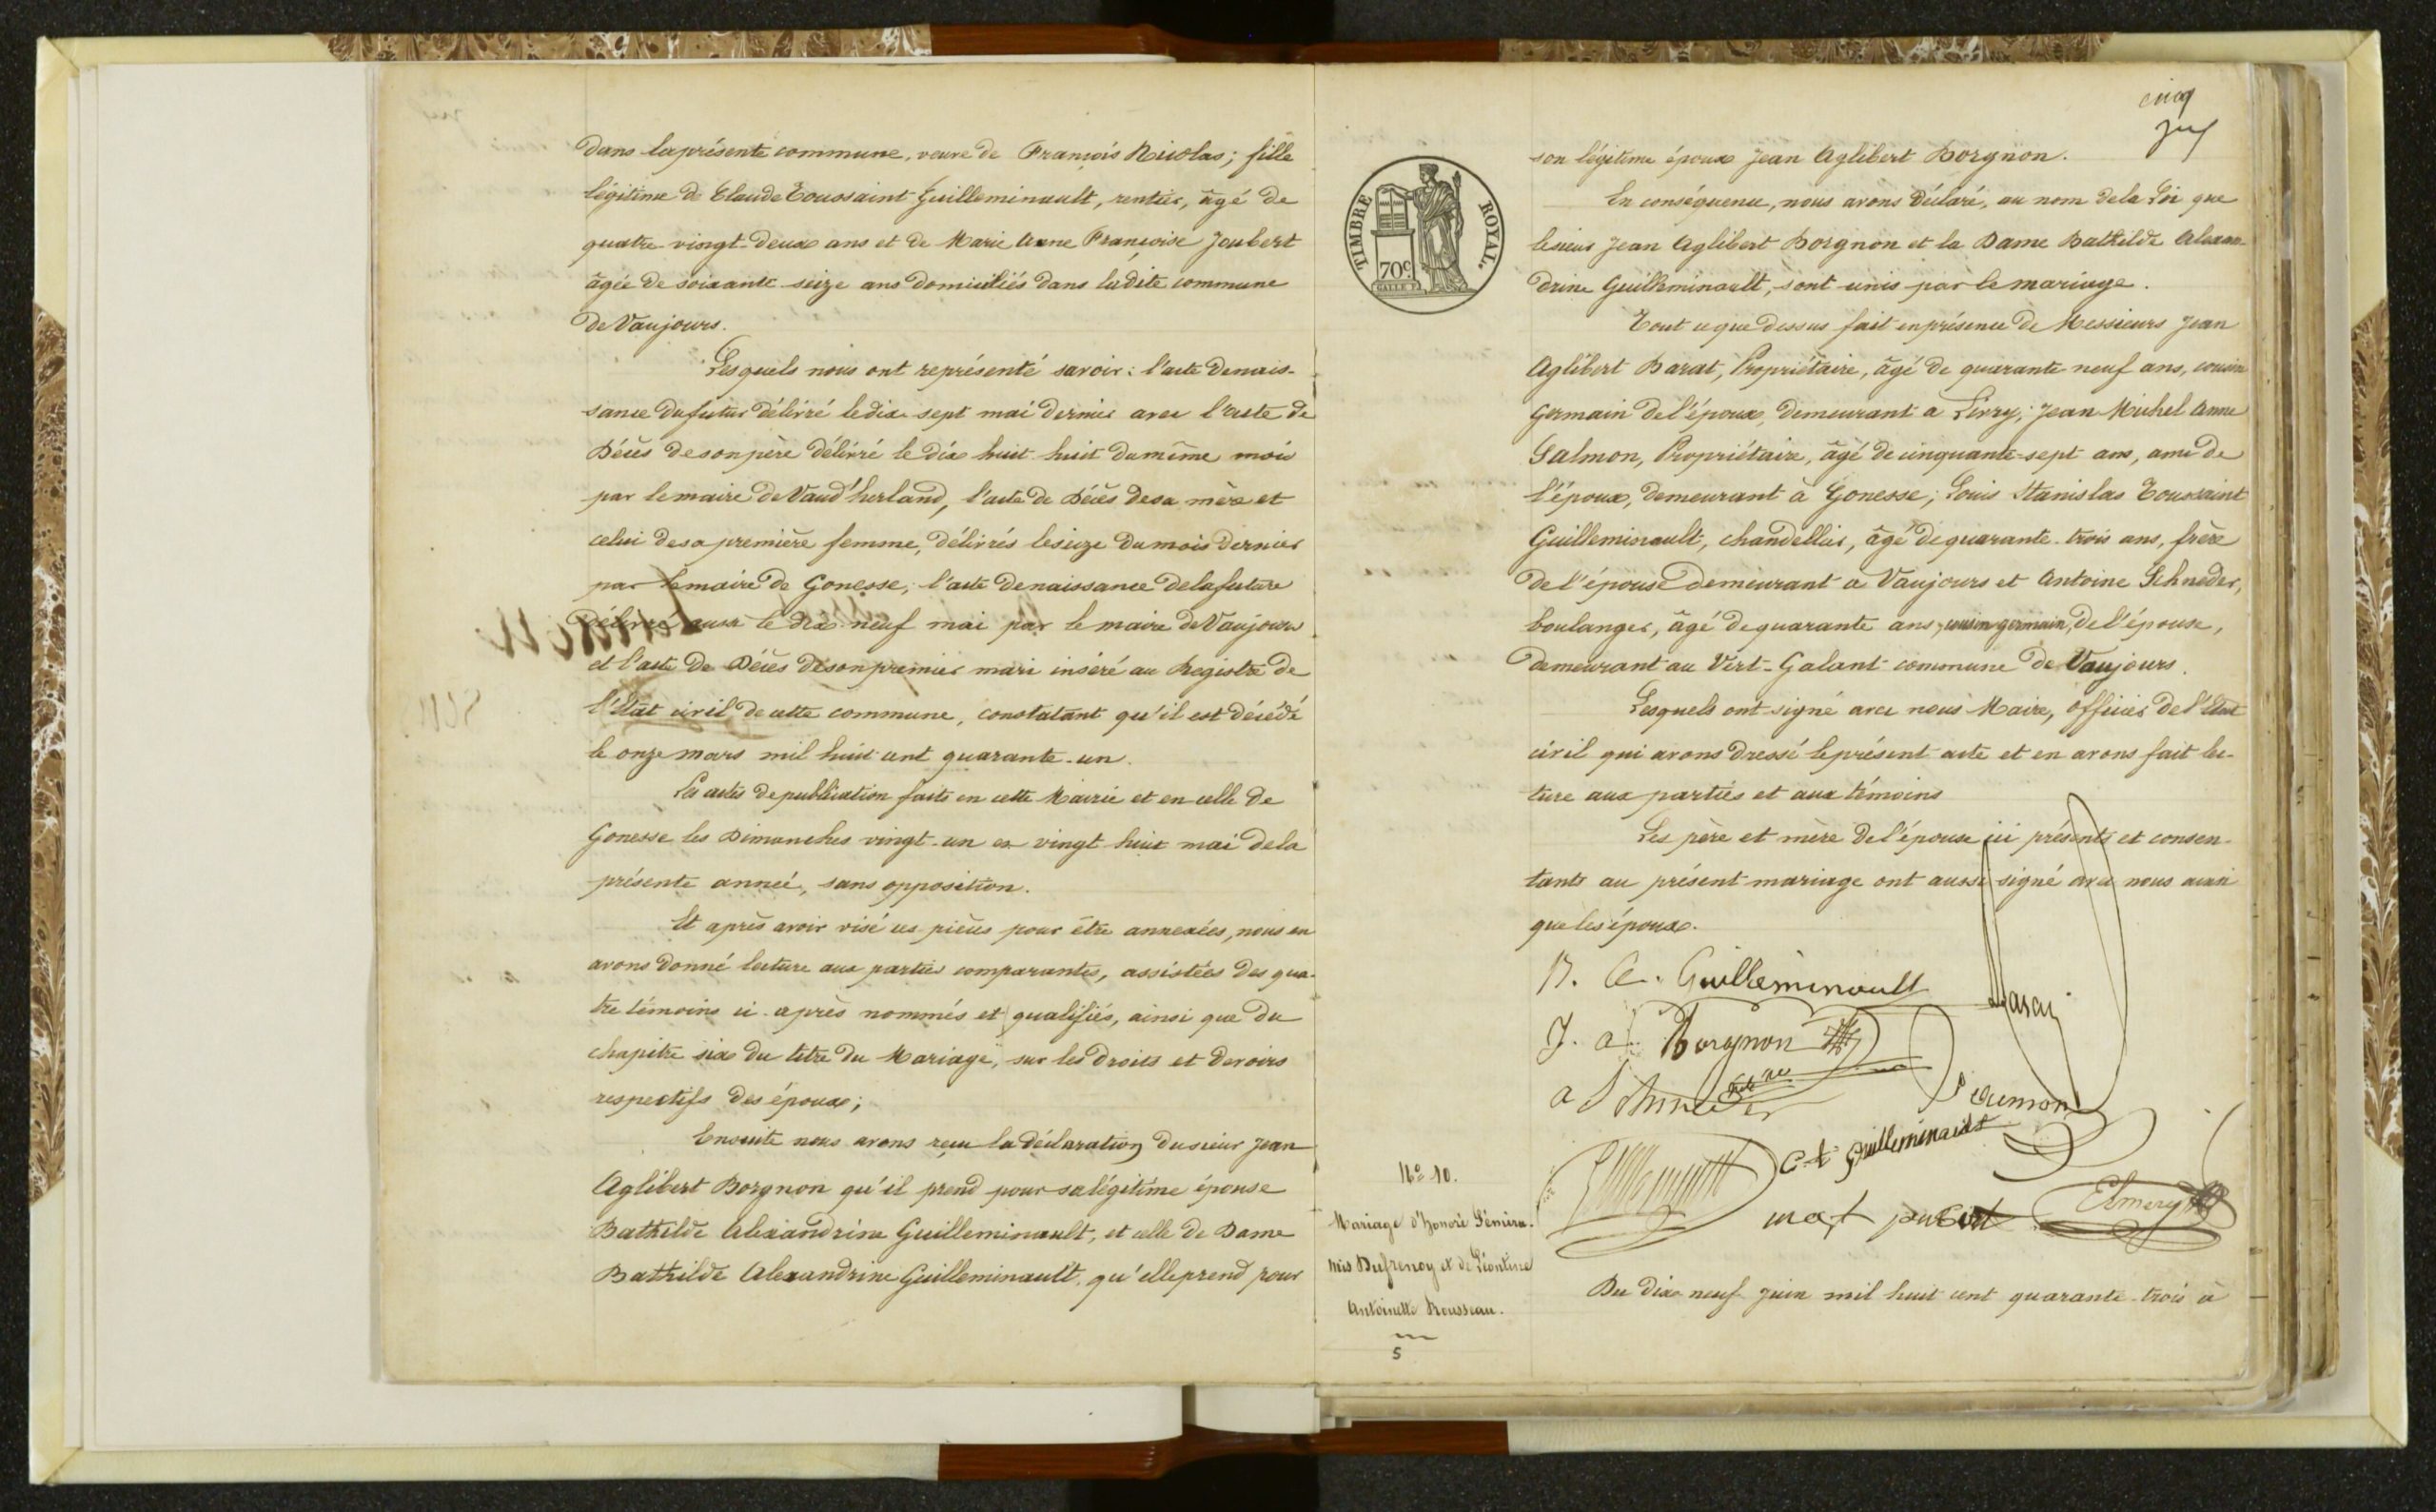 dans la présente commune, veuve de François Nicolas; fille
légitime de Claude Toussaint Guilleminault, rentier, âgé de
quatre-vingt-deux ans et de Marie Anne Françoise Joubert
âgée de soixante-seize ans domiciliés dans ladite commune
de Vaujours.
Lesquels nous ont représenté savoir: l'acte de nais-
sance du futur délivré le dix sept mai dernier avec l'acte de
Décès de son père délivré le dix huit huit du même mois
par le maire de Vaud'herland, l'acte de Décès de sa mère et
celui de sa première femme, délivrés le seize du mois dernier
par le maire de Gonesse, l'acte de naissance de la future
délivré aussi le dix-neuf mai par le maire de Vaujours
et l'acte de Décès de son premier mari inséré au Registre de
l'Etat civil de cette commune, constatant qu'il est décédé
le onze mars mil huit cent quarante-un.
Les actes de publication faits en cette Mairie et en celle de
Gonesse les Dimanches vingt-un et vingt huit mai de la
présente année, sans opposition.
Et après avoir visé ces pièces pour être annexées, nous en
avons donné lecture aux parties comparantes, assistées des qua-
tre témoins ci-après nommés et qualifiés, ainsi que du
chapitre six du titre du Mariage, sur les droits et devoirs
respectifs des époux;
Ensuite nous avons reçu la déclaration du sieur Jean
Aglibert Borgnon qu'il prend pour sa légitime épouse
Bathilde Alexandrine Guilleminault, et celle de Dame
Bathilde Alexandrine Guilleminault, qu'elle prend pour
cinq
TIMBRE ROYAL.
70c
son légitime époux Jean Aglibert Borgnon.
En conséquence, nous avons déclaré, au nom de la Loi que
le sieur Jean Aglibert Borgnon et la Dame Bathilde Alexan-
drine Guilleminault, sont unis par le mariage.
Tout ce que dessus fait en présence de Messieurs Jean
Aglibert Barat, Propriétaire, âgé de quarante neuf ans, cousin
Germain de l'époux, demeurant a Livry; Jean Michel Anne
Salmon, Propriétaire, âgé de cinquante-sept ans, ami de
l'époux, demeurant à Gonesse; Louis Stanislas Toussaint
Guilleminault, chandellier, âgé de quarante-trois ans, frère
de l'épouse demeurant a Vaujours et Antoine Schneder,
boulanger, âgé de quarante ans, cousin germain, de l'épouse,
demeurant au Vert-Galant commune de Vaujours.
Lesquels ont signé avec nous Maire, officier de l'Etat
civil qui avons dressé le présent acte et en avons fait lec-
ture aux parties et aux témoins
Les père et mère de l'épouse ici présents et consen-
tants au présent mariage ont aussi signé avec nous ainsi
que les époux.
B. A. Guilleminault
J. a. Borgnon
C t Guilleminault
Du dix neuf Juin mil huit cent quarante-trois à
No 10.
Mariage d'honoré
Dufrenoy et de Léontine
Antoinette Rousseau.
5